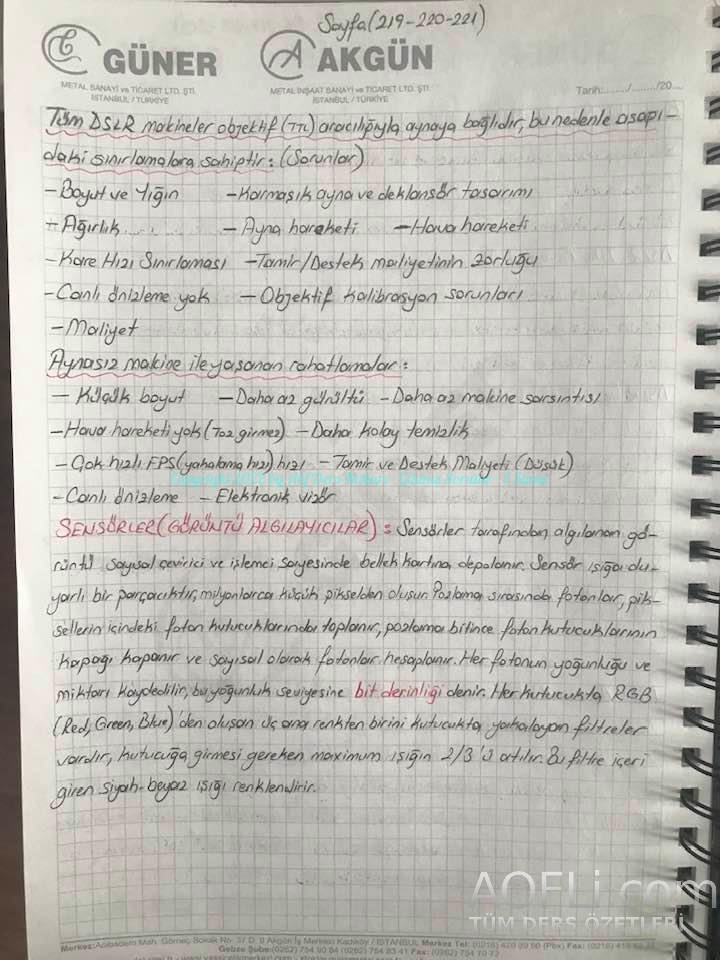 Sayfa (219-220-221)
GÜNER
AKGÜN
METAL SANAYİ ve TİCARET LTD. ŞTİ.
İSTANBUL / TÜRKİYE
METAL İNŞAAT SANAYİ ve TİCARET LTD. ŞTİ.
İSTANBUL / TÜRKİYE
Tarih:......./......./20....
Tüm DSLR makineler objektif (TTL) aracılığıyla aynaya bağlıdır, bu nedenle aşağı-
daki sınırlamalara sahiptir: (Sorunlar)
- Boyut ve Yığın - Karmaşık ayna ve deklanşör tasarımı
- Ağırlık - Ayna hareketi - Hava hareketi
- Kare Hızı Sınırlaması - Tamir/Destek maliyetinin zorluğu
- Canlı önizleme yok - Objektif kalibrasyon sorunları
- Maliyet
Aynasız makine ile yaşanan rahatlamalar:
- Küçük boyut - Daha az gürültü - Daha az makine sarsıntısı
- Hava hareketi yok (Toz girmez) - Daha kolay temizlik
- Çok hızlı FPS (yakalama hızı) hızı - Tamir ve Destek Maliyeti (Düşük)
- Canlı önizleme - Elektronik vizör
SENSÖRLER (GÖRÜNTÜ ALGILAYICILAR): Sensörler tarafından algılanan gö-
rüntü sayısal çevirici ve işlemci sayesinde bellek kartına depolanır. Sensör ışığa du-
yarlı bir parçacıktır, milyonlarca küçük pikselden oluşur. Pozlama sırasında fotonlar, pik-
sellerin içindeki foton kutucuklarında toplanır, pozlama bitince foton kutucuklarının
kapağı kapanır ve sayısal olarak fotonlar hesaplanır. Her fotonun yoğunluğu ve
miktarı kaydedilir, bu yoğunluk seviyesine bit derinliği denir. Her kutucukta RGB
(Red, Green, Blue)'den oluşan üç ana renkten birini kutucukta yakalayan filtreler
vardır, kutucuğa girmesi gereken maximum ışığın 2/3'ü atılır. Bu filtre içeri
giren siyah-beyaz ışığı renklendirir.
AOFLi.com
TÜM DERS ÖZETLERİ
Merkez:
İSTANBUL Merkez Tel:
Gebze Şube: